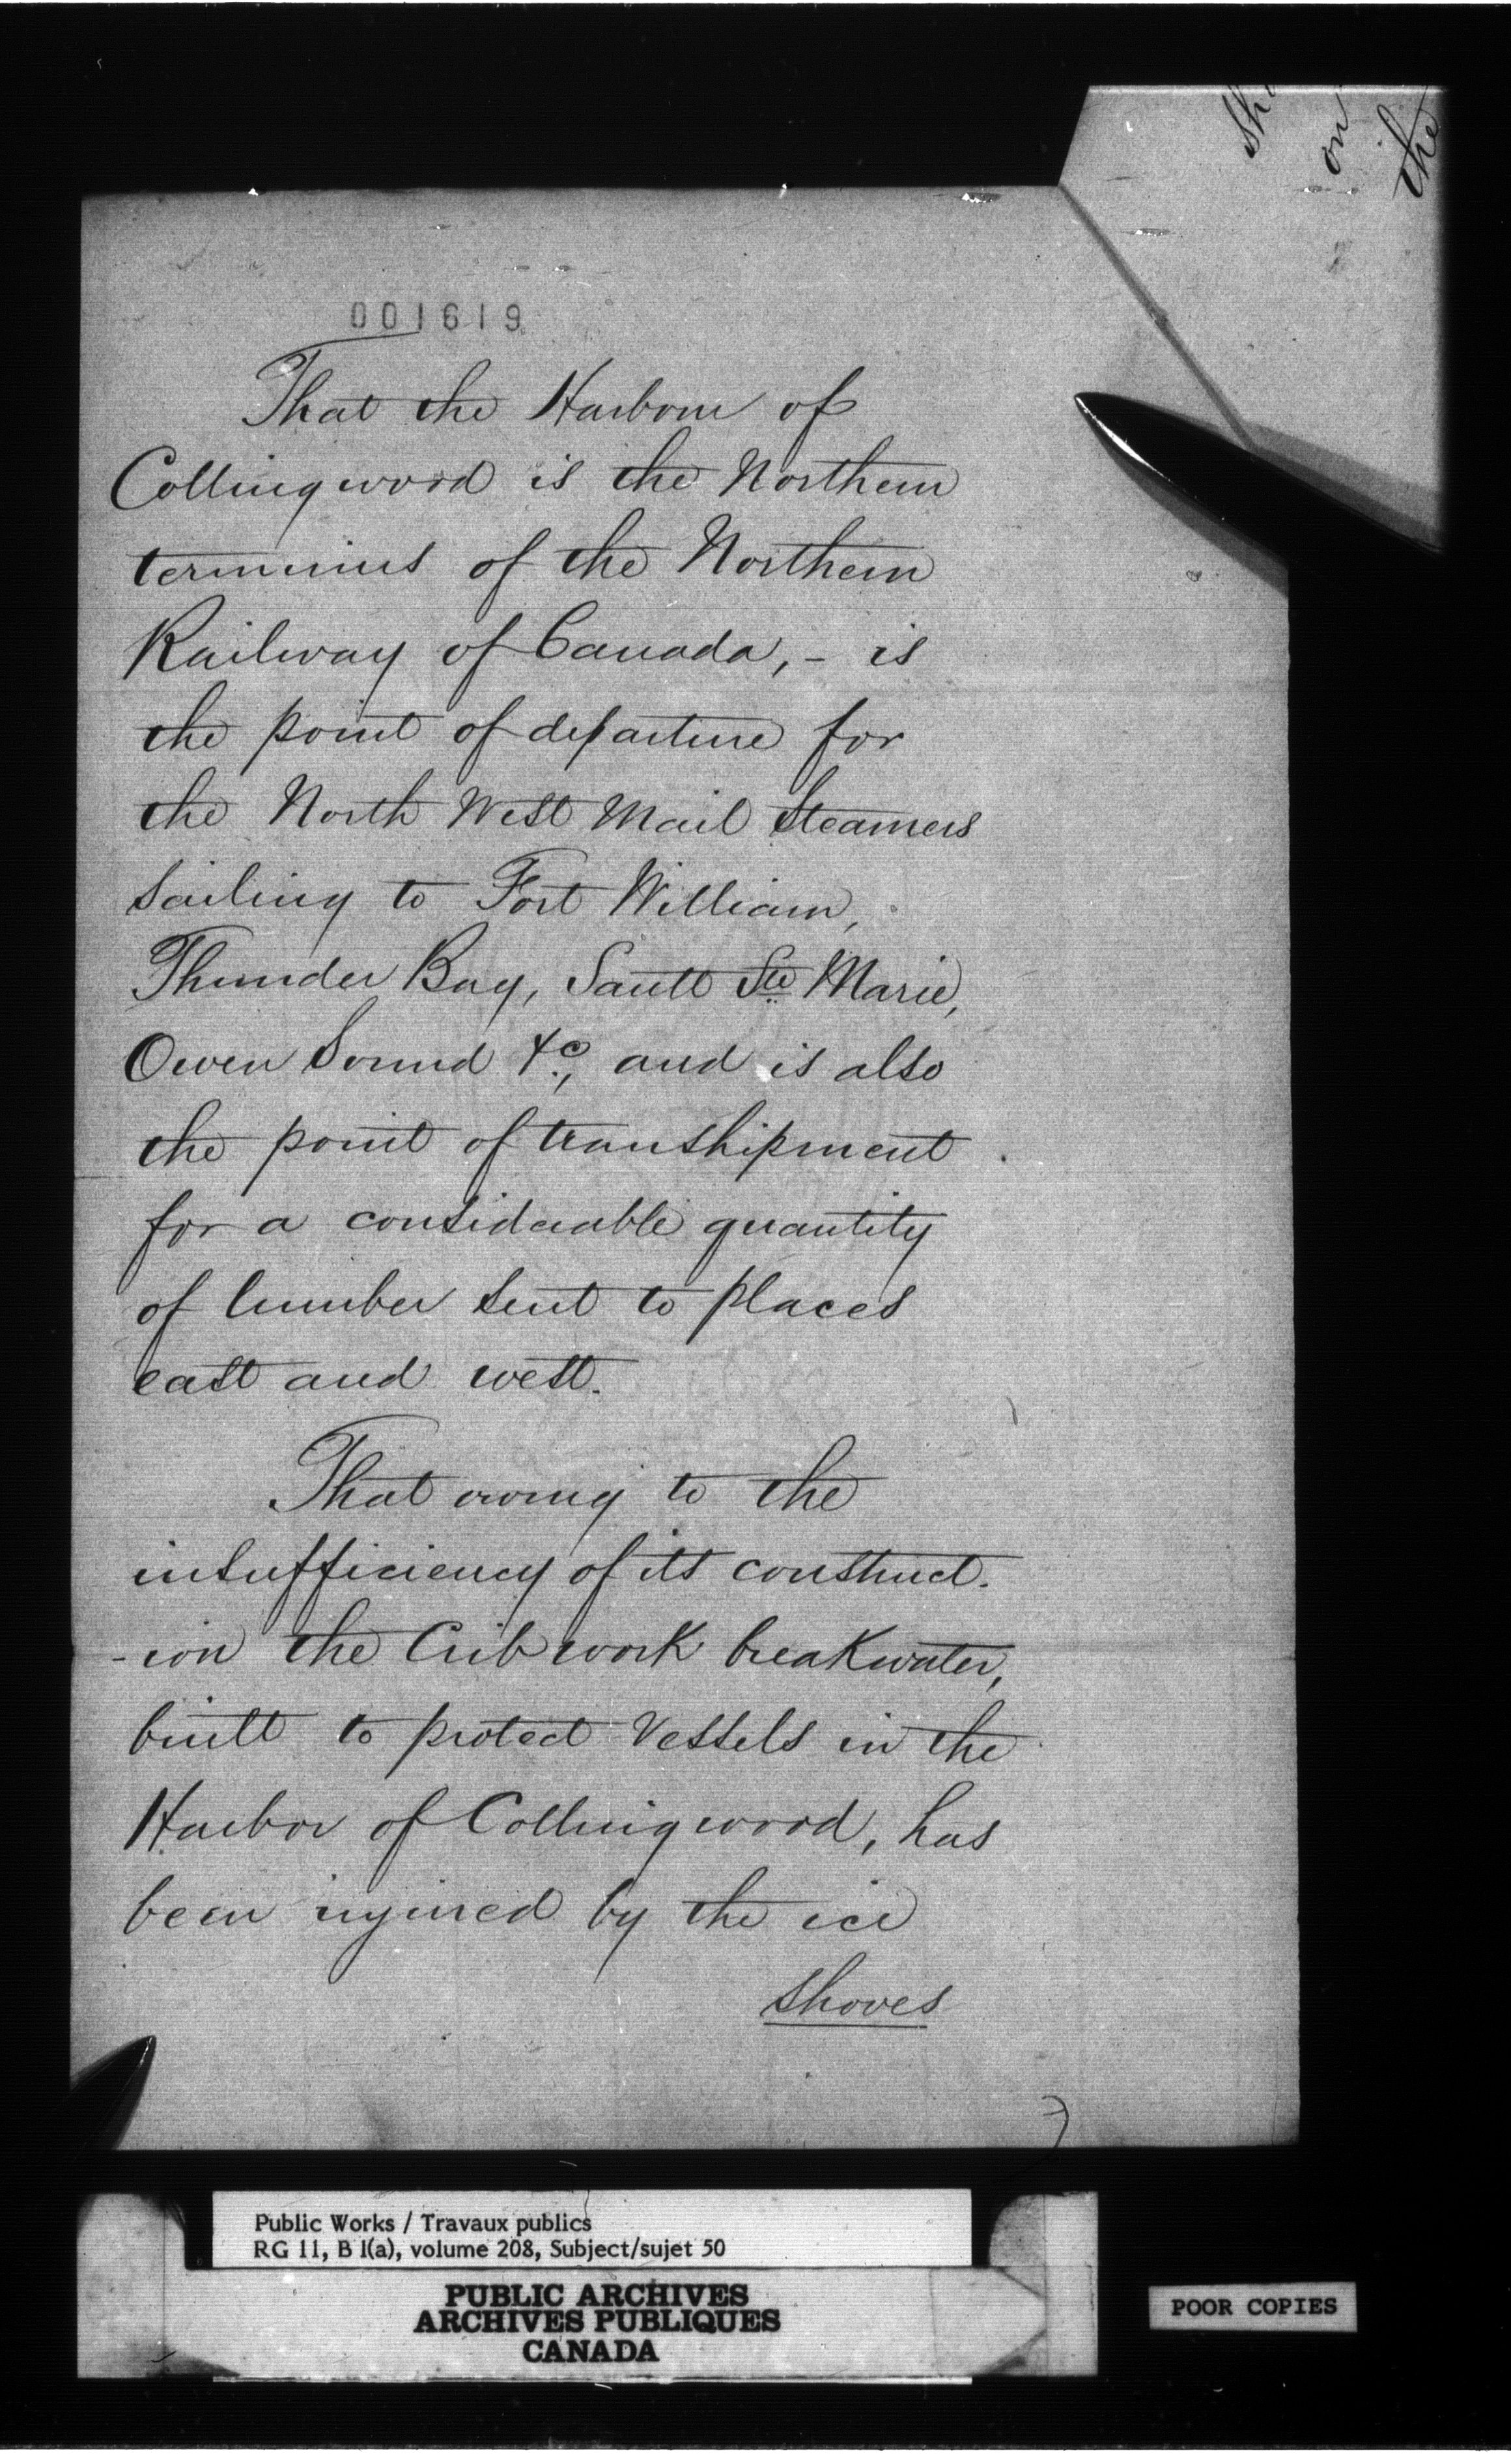 Sh
on
the
001619
That the Harbour of
Collingwood is the Northern
terminus of the Northern
Railway of Canada, - is
the point of departure for
the North West Mail Steamers
sailing to Fort William,
Thunder Bay, Sault Ste Marie,
Owen Sound &c., and is also
the point of transhipment
for a considerable quantity
of lumber sent to places
east and west.
That owing to the
insufficiency of its construct-
-ion the Crib work breakwater,
built to protect Vessels in the
Harbor of Collingwood, has
been injured by the ice
shoves
Public Works / Travaux publics
RG 11, B 1(a), volume 208, Subject/sujet 50
PUBLIC ARCHIVES
ARCHIVES PUBLIQUES
CANADA
POOR COPIES